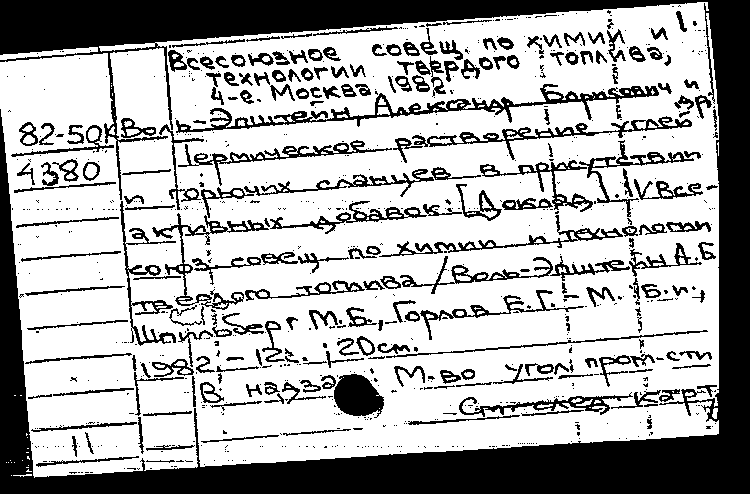 1.
Всесоюзное совещ. по химии и
технологии твердого топлива,
4-е. Москва, 1982.
82-50К Воль-Эпштейн, Александр Борисович и др.
4380 Термическое растворение углей
и горючих сланцев в присутствии
активных добавок: [Доклад]. IV Все-
союз. совещ. по химии и технологии
твердого топлива / Воль-Эпштейн А.Б.
Шпильберг М.Б., Горлов Е.Г. - М. Б.и.,
1982. - 12с. ; 20см.
В надза : М-во угол. пром-сти
См. след. карт
11